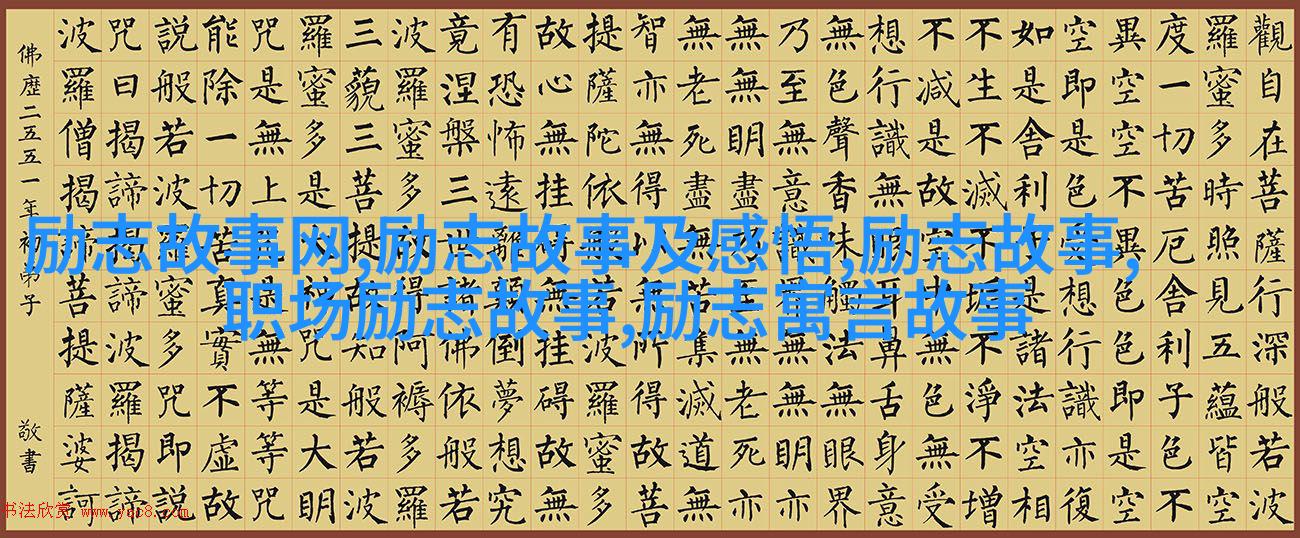 觀自在菩薩行深般若波
羅蜜多時照見五蘊皆空
度一切苦厄舍利子色不
異空空不異色色即是空
空即是色受想行識亦復
如是舍利子是諸法空相
不生不滅不垢不淨不增
不減是故空中無色無受
想行識無眼耳鼻舌身意
無色聲香味觸法無眼界
乃至無意識界無無明亦
無無明盡乃至無老死亦
無老死盡無苦集滅道無
智亦無得以無所得故菩
提薩陀依般若波羅蜜多
故心無挂碍無挂碍故無
有恐怖遠離顛倒夢想究
竟涅槃三世諸佛依般若
波羅蜜多故得阿褥多羅
三藐三菩提故知般若波
羅蜜多是大神咒是大明
咒是無上咒是無等等咒
能除一切苦真實不虛故
說般若波羅蜜多咒即說
咒曰揭諦揭諦波羅揭諦
波羅僧揭諦菩提薩婆訶
佛歷二五五一年初弟子 敬書
励志故事网,励志故事及感悟,励志故事,
职场励志故事,励志寓言故事
书法欣赏 www.yac8.com